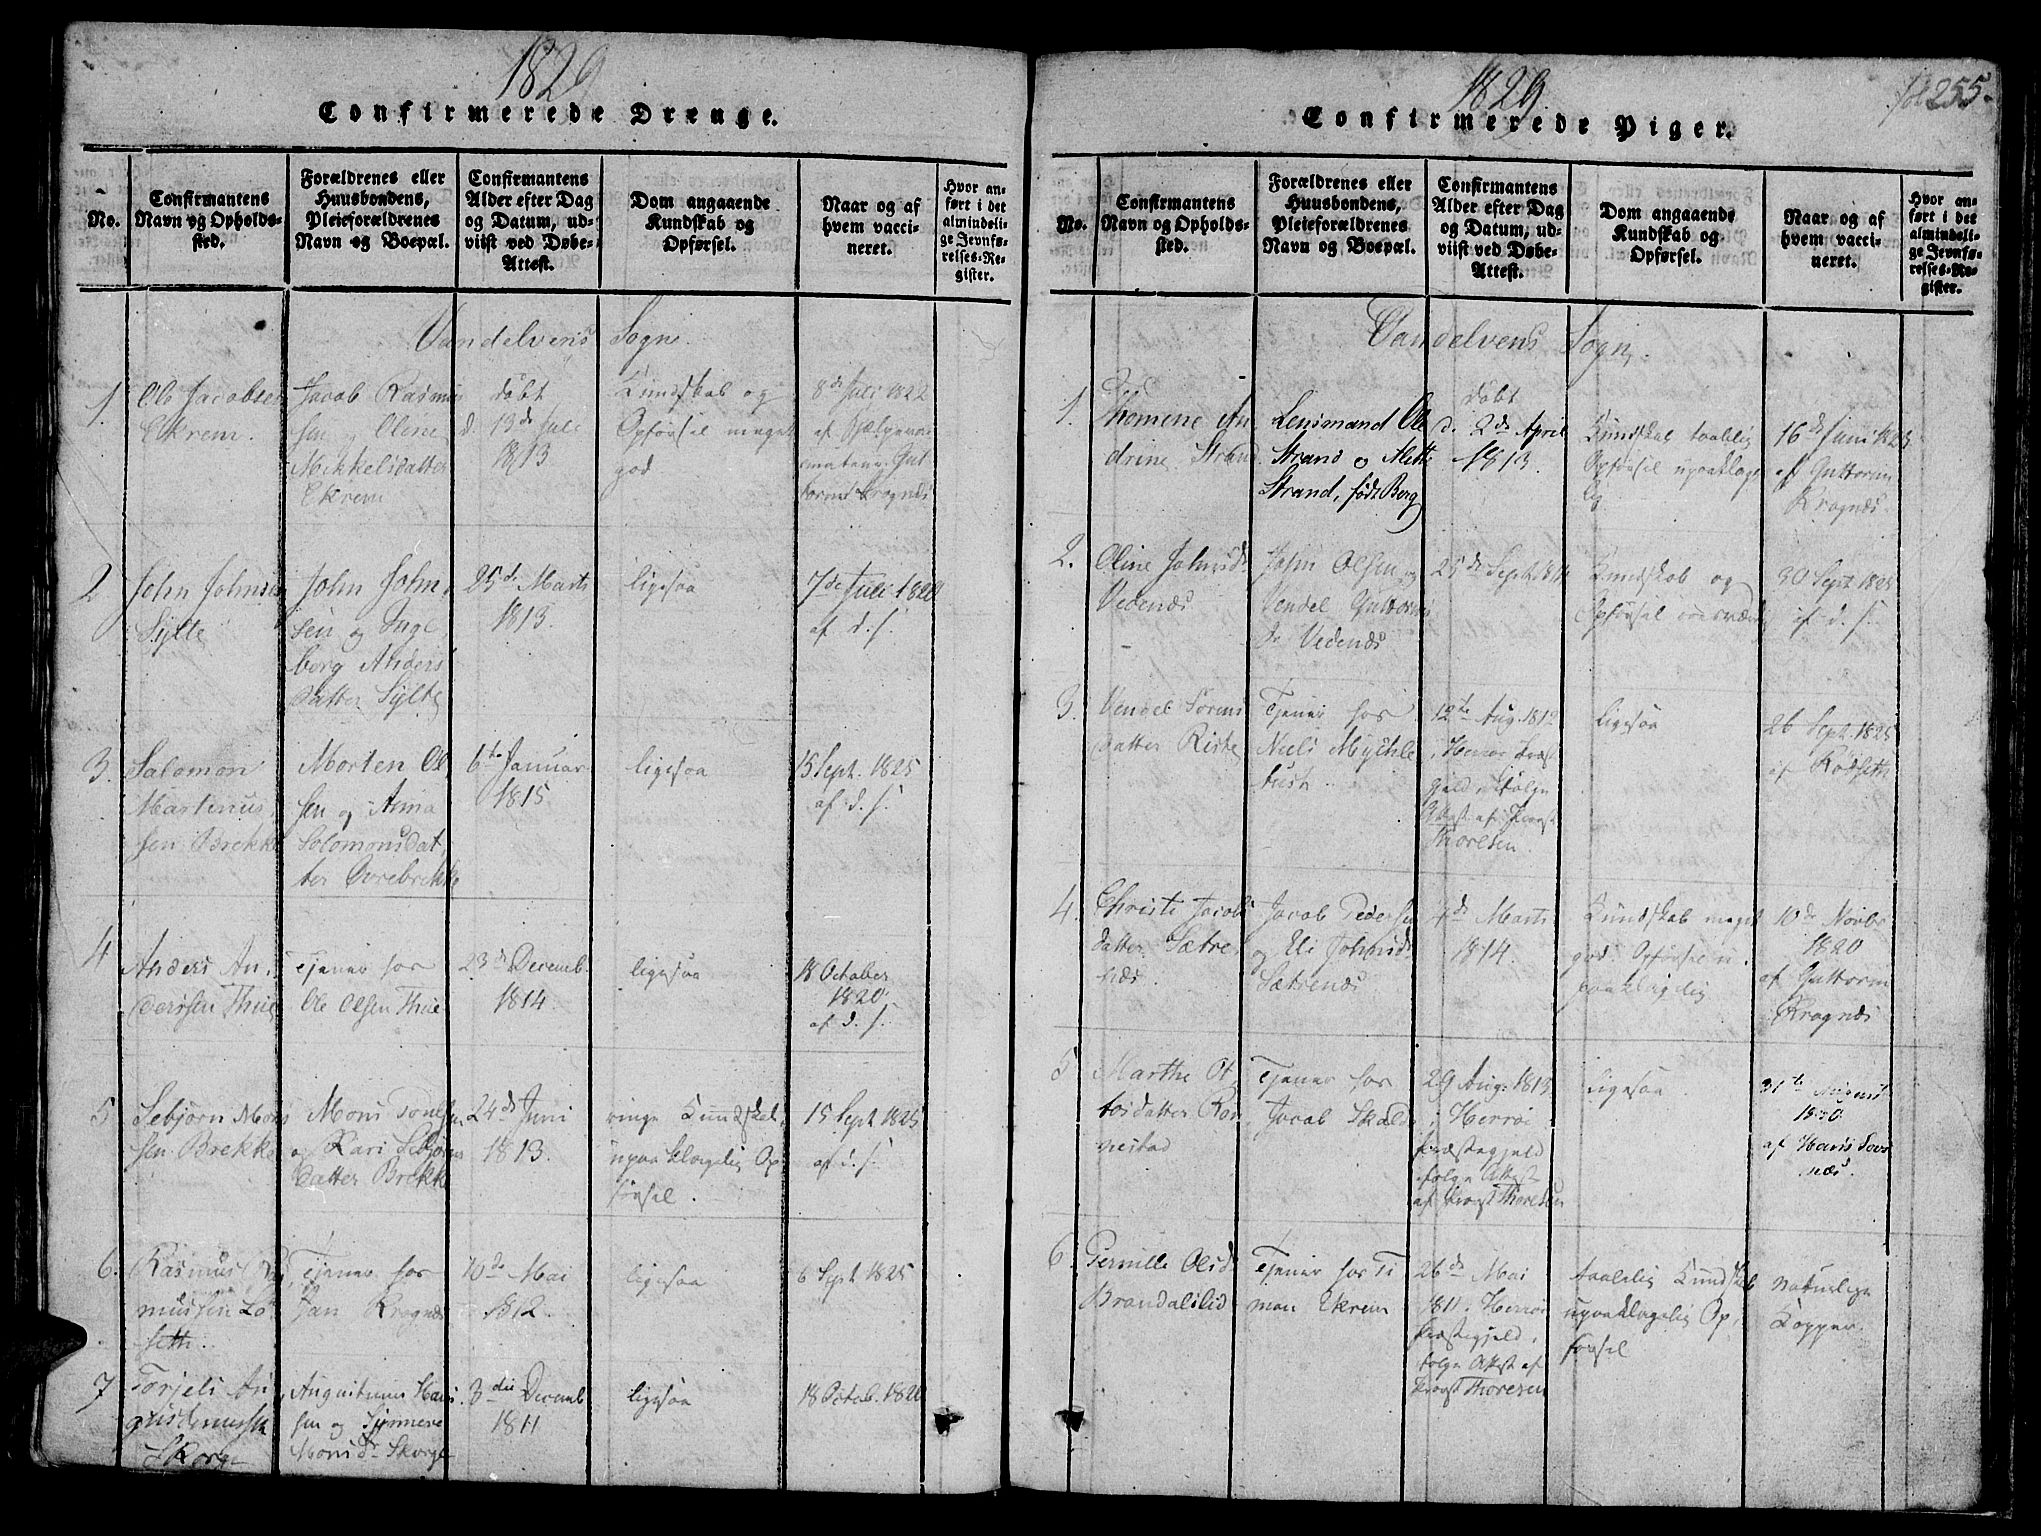 1829
Confirmerede Drænge.
No.
Confirmantens
Navn og Opholds-
sted.
Forældrenes eller
Huusbondens,
Pleieforældrenes
Navn og Boepæl.
Confirmantens
Alder efter Dag
og Datum, ud-
viist ved Døbe-
Attest.
Dom angaaende
Kundskab og
Opførsel.
Naar og af
hvem vacci-
neret.
Hvor an-
ført i det
almindeli-
ge Jevnfø-
relses-Re-
gister.
Vandelvens Sogn.
1.
Ole Jacobsen
Ekrem.
Jacob Rasmus
sen og Oline
Mikkelsdatter
Ekrem
døbt
d. 13de Juli
1813
Kundskab og
Opførsel meget
god
8de Juli 1822
af
Krognæs
2
John Johnsen
Sylte
John John
sen og Inge
borg Anders
datter Sylte
25de Marts
1813.
ligesaa
7de Juli 1820
af d. s.
3.
Salomon
Martinus
sen Brekke
Morten Ol
sen og Anna
Solomonsdat
ter Øvrebrekke
6te Januar
1815
ligesaa
15 Sept. 1825
af d. s.
4
Anders An
dersen Thue
Tjener hos
Ole Olsen Thue
23de Decemb.
1814
ligesaa
18 October
1820
af d. s.
5
Sebjørn Mons
sen Brekke
Mons
og Kari Sebjørns
datter Brekke
24de Juni
1813.
ringe Kundskab,
upaaklagelig Op
førsel.
15 Sept 1825
af d. s.
6.
Rasmus Ras
mussen Lø
seth.
Tjener hos
Jan Krognæs
10de Mai
1812
ligesaa
6 Sept 1825
7
Torjeli Au
gustinussen
Skorge
Augustinus Hans
sen og Synneve
Monsdr Skorge
3die Decemb
1811
ligesaa
18 Octob. 1820
1829.
fol 255.
Confirmerede Piger.
No.
Confirmantens
Navn og Opholds-
sted.
Forældrenes eller
Huusbondens,
Pleieforældrenes
Navn og Boepæl.
Confirmantens
Alder efter Dag
og Datum, ud-
viist ved Døbe-
Attest.
Dom angaaende
Kundskab og
Opførsel.
Naar og af
hvem vacci-
neret.
Hvor an-
ført i det
almindeli-
ge Jevnfø-
relses-Re-
gister.
Vandelvens Sogn.
1.
Thomene An
drine Strand
Lensmand Ole
Strand og Mette
Strand, født Berg
døbt
d. 2de April
1813.
Kundskab taalelig
Opførsel upaaklage
lig
16de Juni 1823
af Guttorm
Krognæs
2.
Oline Johnsdr
Vedenæs
John Olsen og
Vendel Guttorms
dr Vedenæs
25de Sept 1814
Kundskab og
Opførsel
30 Sept 1825
af d. s.
3.
Vendel Sørens
datter Riste
Tjener hos
Niels Myckle
bust.
12te Aug. 1812
i Herrø Præste
gjeld, ifølge
Attest af Provst
Thoresen.
ligesaa
26 Sept. 1825
af Rødseth
4.
Christi Jacobs
datter Sætre
næs.
Jacob Pedersen
og Eli Johnsdr
Sætrenæs
4de Marts
1814.
Kundskab meget
god. Opførsel u
paaklagelig
10de Novbr
1820
af Guttorm
Krognæs
5
Marthe Ot
tosdatter Røn
nestad
Tjener hos
Jacob Skeide
29 Aug: 1813
i Herrøe
Præstegjeld
ifølge Attest
af Provst Thoresen
ligesaa.
31te
1820.
af Hans Sors
næs.
6.
Pernille Olsdr
Brandalslid
Tjener hos Ti
man Ekrem
26de Mai
1811. Herrøe
Præstegjeld,
ifølge Attest af
Provst Thoresen
taalelig Kundskab
upaaklagelig Op,
førsel
naturlige
Kopper.